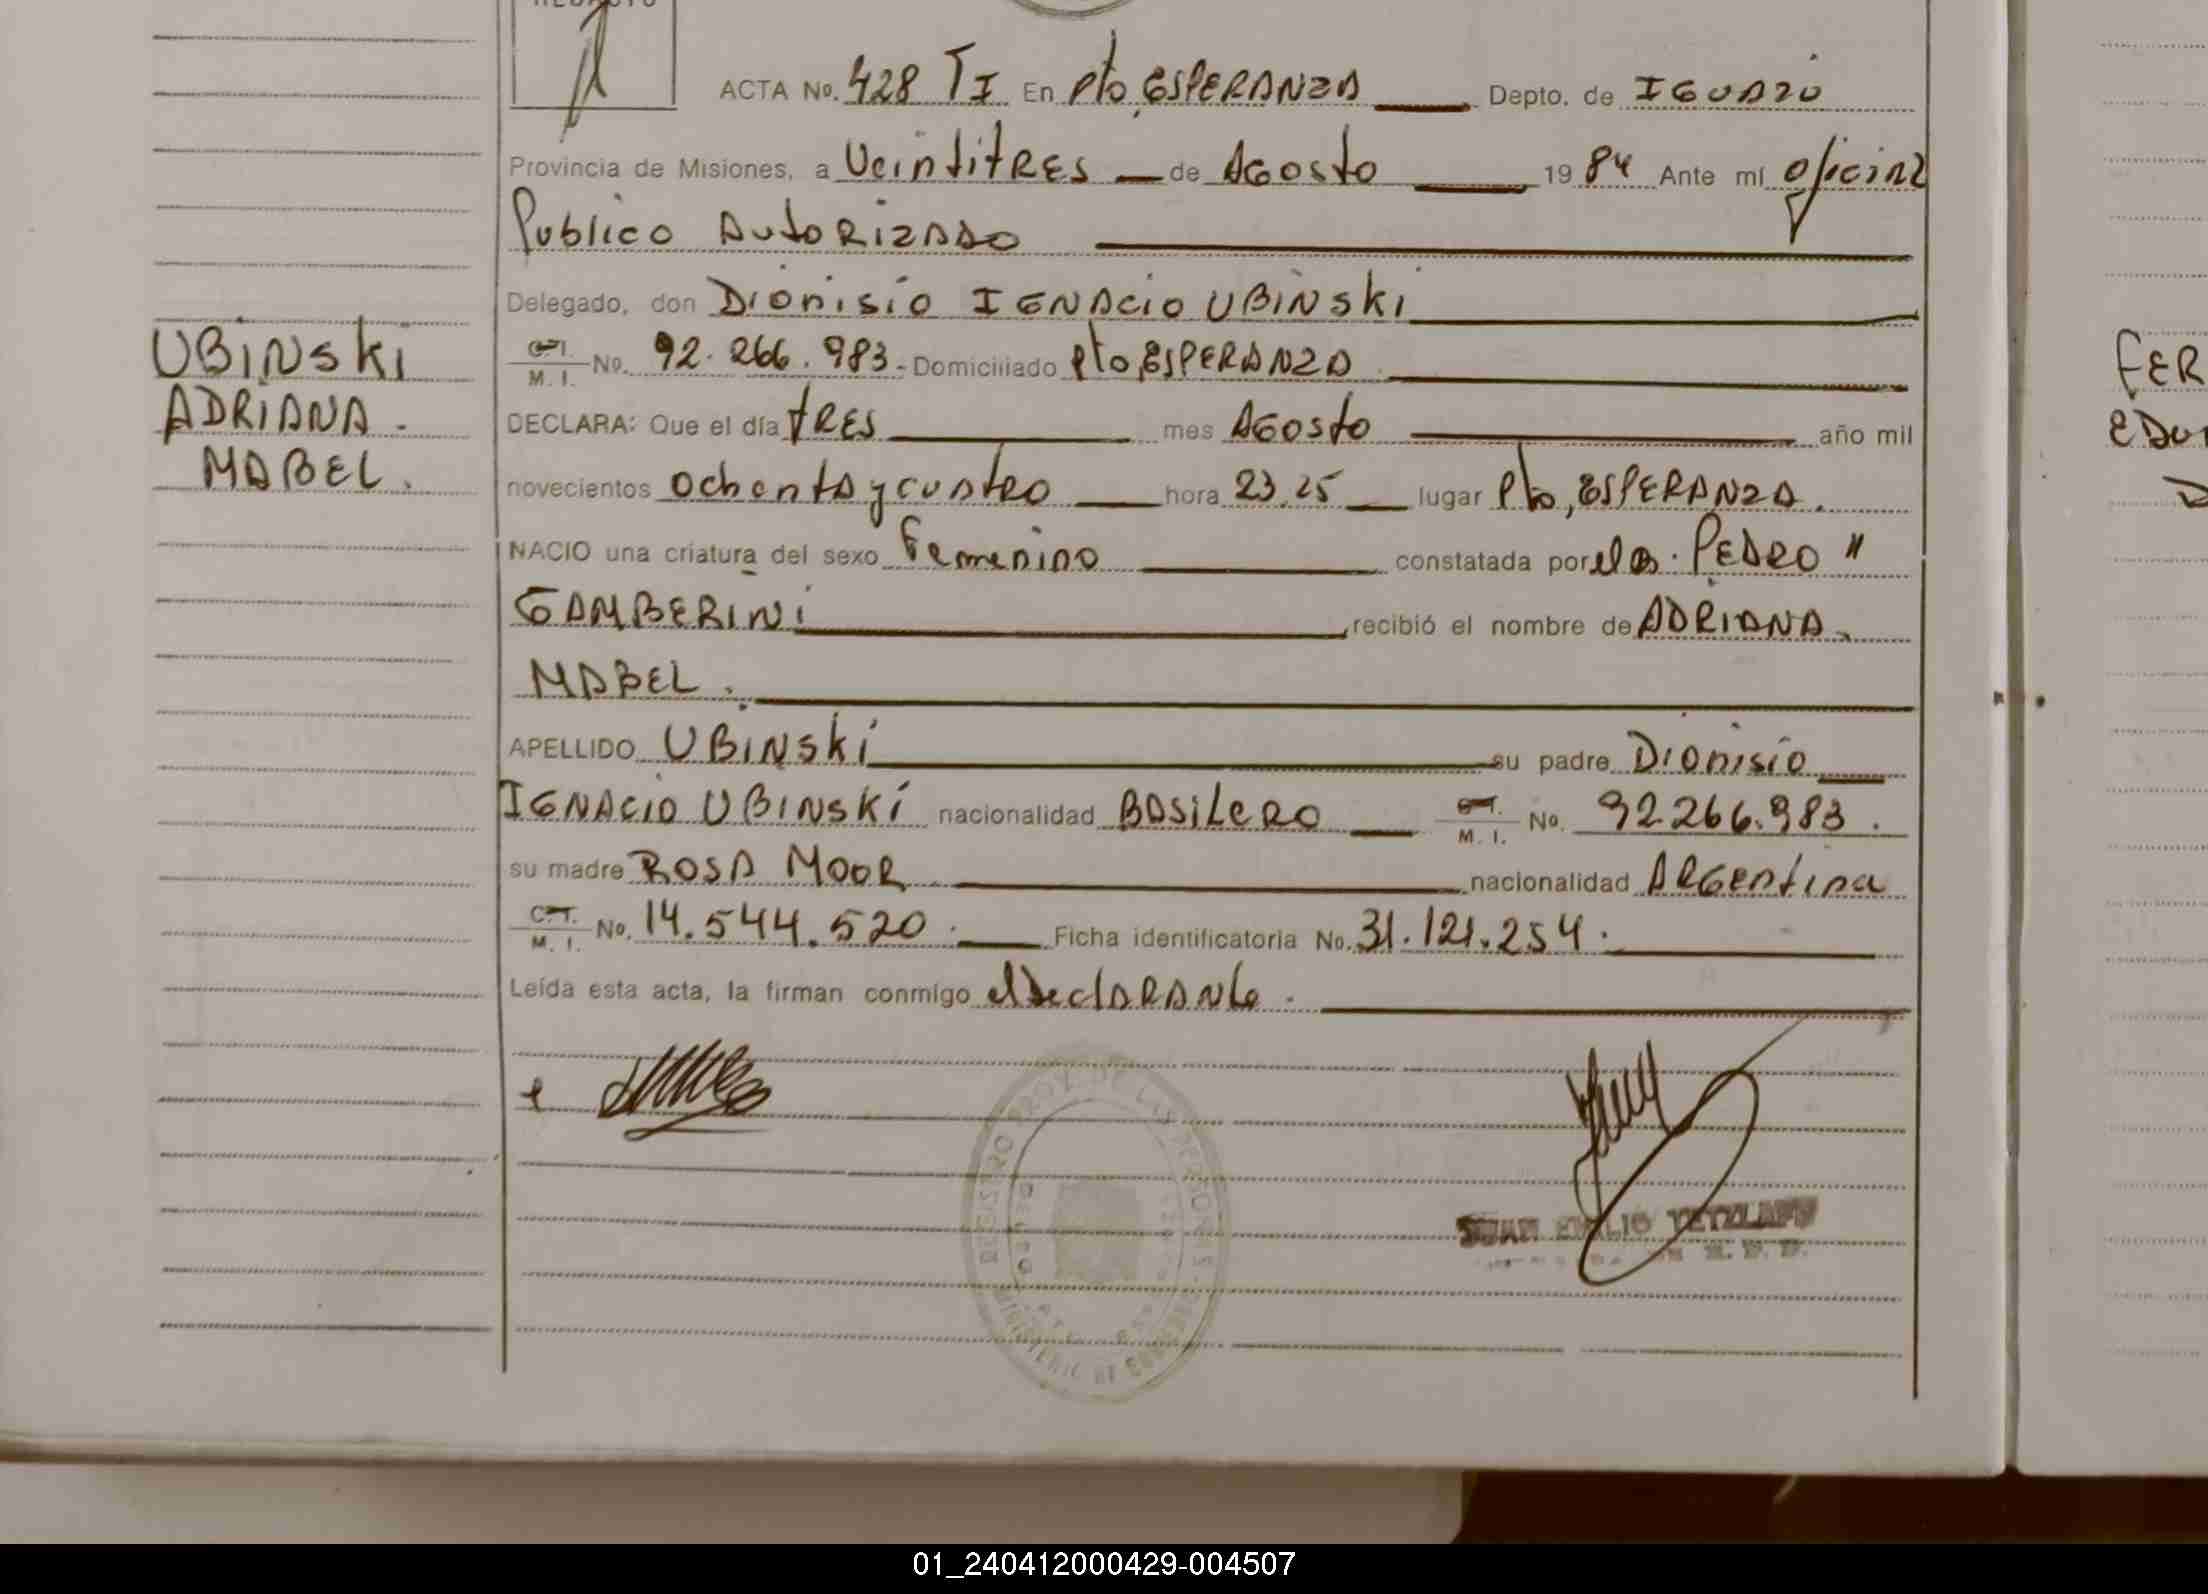 REDACTO
ACTA No. 428 TI En Pto, ESPERANZA Depto. de IGUAZU
Provincia de Misiones, a Veintitres de Agosto 1984 Ante mí oficial
Publico Autorizado
Delegado, don Dionisio Ignacio UBinski
C.I. M. I. No. 92.266.983- Domiciliado Pto, ESPERANZA
UBINSKI
ADRIANA
MABEL.
DECLARA: Que el día tres mes Agosto año mil
novecientos ochenta y cuatro hora 23,25 lugar Pto, ESPERANZA.
NACIO una criatura del sexo Femenino constatada por el Dr. PEDRO "
GAMBERINI recibió el nombre de ADRIANA
MABEL.
APELLIDO UBINSKI su padre Dionisio
IGNACIO UBINSKI nacionalidad BASILERO C.I. M. I. No. 92.266.983.
su madre ROSA MOOR nacionalidad Argentina
C.I. M. I. No. 14.544.520. Ficha identificatoria No. 31.121.254.
Leída esta acta, la firman conmigo el declarante.
REGISTRO PROV. DE LAS PERSONAS
JUAN EMILIO TETZLAFF
FER
EDU
01_240412000429-004507